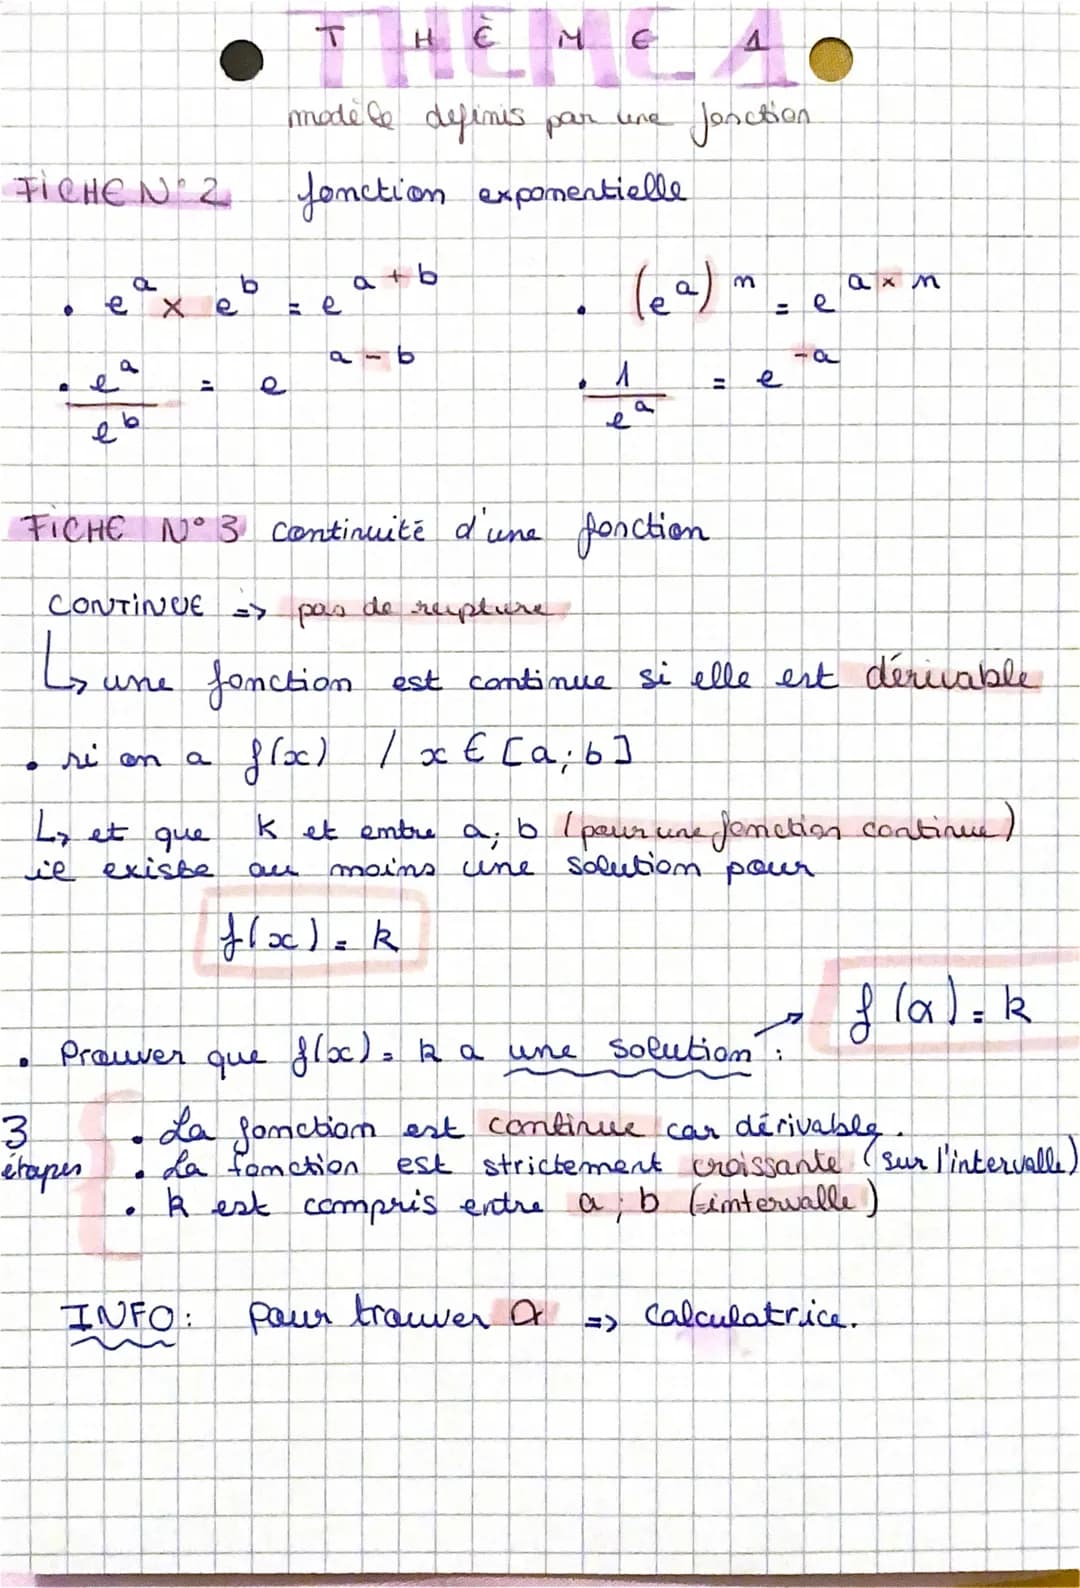 THÈME 1
modèle definis par une fonction
FICHE N°2 fonction exponentielle
• e^a × e^b = e^(a+b) • (e^a)^n = e^(a×n)
• e^a / e^b = e^(a-b) • 1 / e^a = e^(-a)
FICHE N°3 continuité d'une fonction
CONTINUE => pas de rupture
↳ une fonction est continue si elle est dérivable
• si on a f(x) / x ∈ [a;b]
↳ et que K et entre a; b (pour une fonction continue)
il existe au moins une solution pour
f(x) = k
f(α) = k
• Prouver que f(x) = k a une solution :
3 étapes
• La fonction est continue car dérivable.
• La fonction est strictement croissante (sur l'intervalle)
• k est compris entre a ; b (=intervalle)
INFO: pour trouver α => calculatrice.